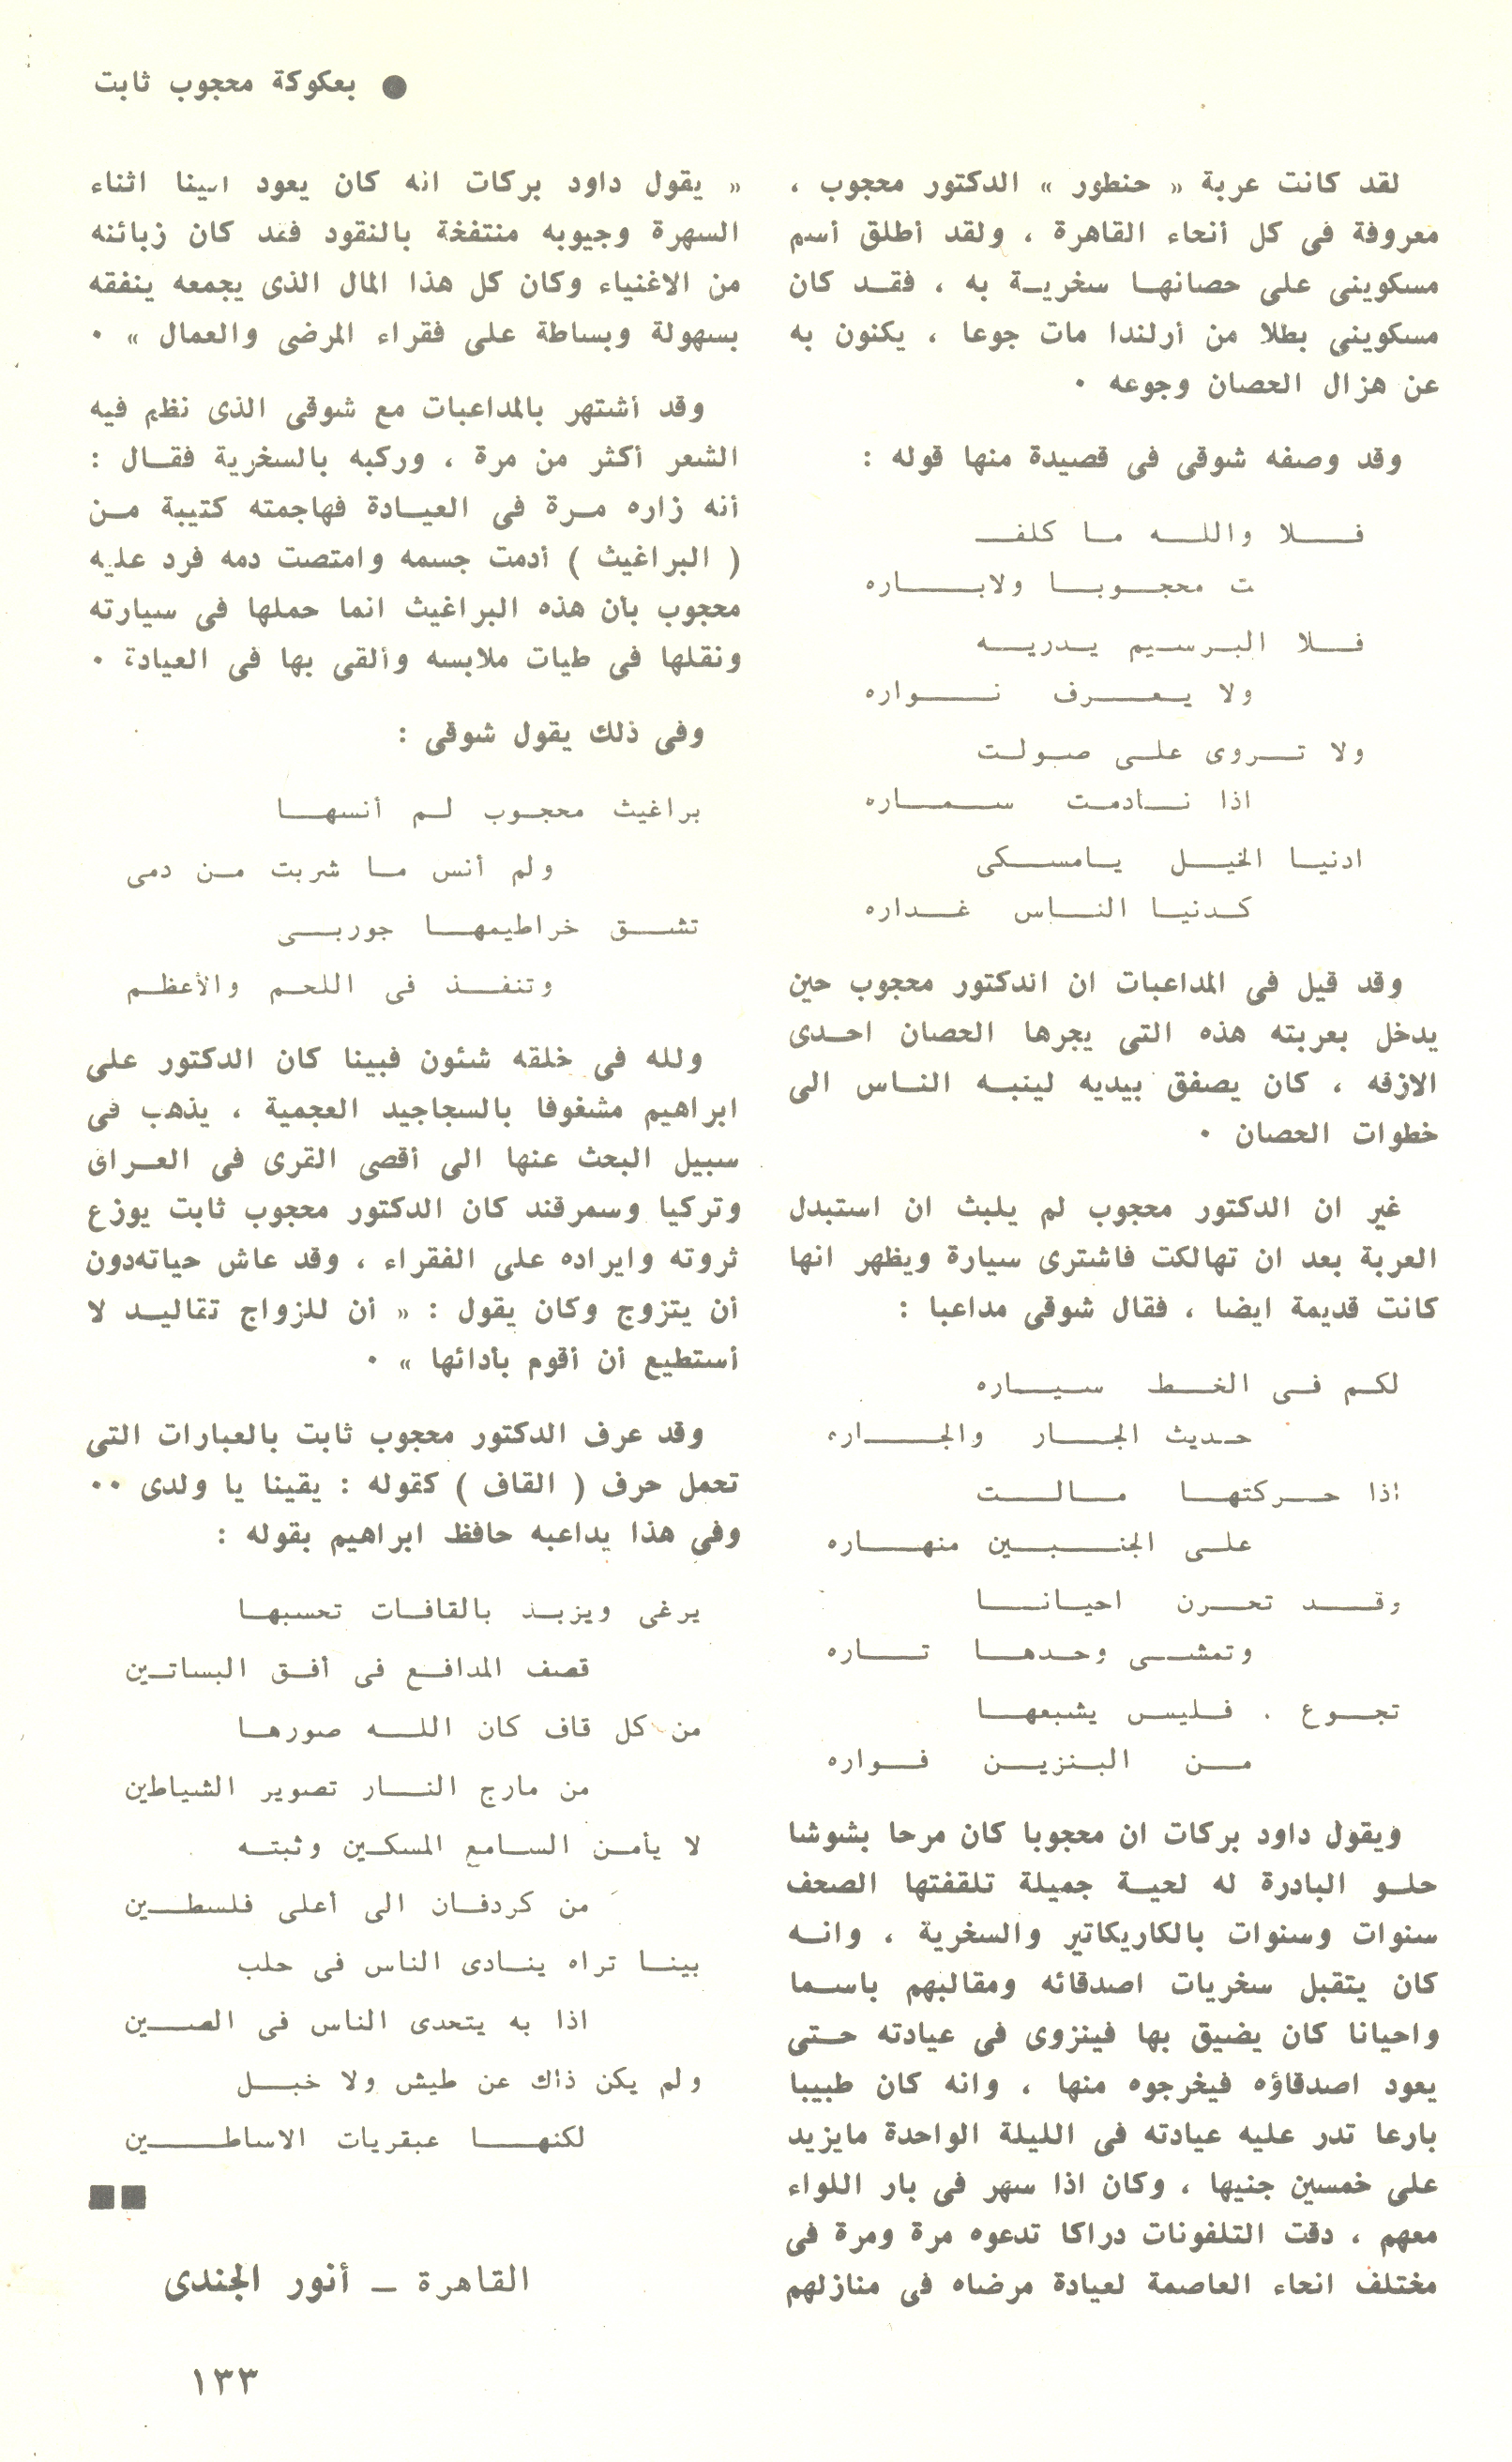 ● بعكوكة محجوب ثابت
لقد كانت عربة « حنطور » الدكتور محجوب ،
معروفة فى كل أنحاء القاهرة ، ولقد أطلق أسم
مسكوينى على حصانهــا سخريـة به ، فقـد كان
مسكوينى بطلا من أرلندا مات جوعا ، يكنون به
عن هزال الحصان وجوعه ٠
وقد وصفه شوقى فى قصيدة منها قوله :
فــلا واللــه مـا كلفــ
ت محجـوبـا ولابــاره
فـلا البـرسـيم يـدريـه
ولا يـعـرف نــواره
ولا تـروى علـى صـولـت
اذا نـادمـت سـمـاره
ادنيـا الخيـل يـامسـكى
كـدنيـا النـاس غـداره
وقد قيل فى المداعبات ان اندكتور محجوب حين
يدخل بعربته هذه التى يجرها الحصان احـدى
الازقه ، كان يصفق بيديه لينبـه النـاس الى
خطوات الحصان ٠
غير ان الدكتور محجوب لم يلبث ان استبدل
العربة بعد ان تهالكت فاشترى سيارة ويظهر انها
كانت قديمة ايضا ، فقال شوقى مداعبا :
لكـم فـى الخـط سـيـاره
حـديث الجـار والجـاره
اذا حـركتهـا مـالـت
علـى الجنـبـين منهـاره
وقـد تحـرن احيـانـا
وتمشـى وحـدهـا تـاره
تجـوع . فـليس يشبعهـا
مـن البـنزيـن فـواره
ويقول داود بركات ان محجوبا كان مرحا بشوشا
حلـو البادرة له لحيـة جميلة تلقفتها الصحف
سنوات وسنوات بالكاريكاتير والسخرية ، وانـه
كان يتقبل سخريات اصدقائه ومقالبهم باسـما
واحيانا كان يضيق بها فينزوى فى عيادته حـتى
يعود اصدقاؤه فيخرجوه منها ، وانه كان طبيبا
بارعا تدر عليه عيادته فى الليلة الواحدة مايزيد
على خمسين جنيها ، وكان اذا سهر فى بار اللواء
معهم ، دقت التلفونات دراكا تدعوه مرة ومرة فى
مختلف انحاء العاصمة لعيادة مرضاه فى منازلهم
« يقول داود بركات انه كان يعود الينا اثناء
السهرة وجيوبه منتفخة بالنقود فقد كان زبائنه
من الاغنياء وكان كل هذا المال الذى يجمعه ينفقه
بسهولة وبساطة على فقراء المرضى والعمال » ٠
وقد أشتهر بالمداعبات مع شوقى الذى نظم فيه
الشعر أكثر من مرة ، وركبه بالسخرية فقـال :
أنه زاره مـرة فى العيـادة فهاجمته كتيبة مـن
( البراغيث ) أدمت جسمه وامتصت دمه فرد عليه
محجوب بأن هذه البراغيث انما حملها فى سيارته
ونقلها فى طيات ملابسه وألقى بها فى العيادة ٠
وفى ذلك يقول شوقى :
براغيث محجـوب لـم أنسهـا
ولم أنس مـا شربت مـن دمى
تشـق خراطيمهـا جوربـى
وتنفـذ فى اللحـم والأعظـم
ولله فى خلقه شئون فبينا كان الدكتور على
ابراهيم مشغوفا بالسجاجيد العجمية ، يذهب فى
سبيل البحث عنها الى أقصى القرى فى العـراق
وتركيا وسمرقند كان الدكتور محجوب ثابت يوزع
ثروته وايراده على الفقراء ، وقد عاش حياته‌دون
أن يتزوج وكان يقول : « أن للزواج تقاليـد لا
أستطيع أن أقوم بأدائها » ٠
وقد عرف الدكتور محجوب ثابت بالعبارات التى
تحمل حرف ( القاف ) كقوله : يقينا يا ولدى ٠٠
وفى هذا يداعبه حافظ ابراهيم بقوله :
يرغى ويزبـذ بالقافـات تحسبهـا
قصف المدافـع فى أفـق البساتـين
من كل قاف كان اللـه صورهـا
من مارج النـار تصوير الشياطين
لا يأمـن السـامع المسكـين وثبتـه
من كردفـان الى أعلى فلسطـين
بينـا تراه ينـادى الناس فى حلب
اذا به يتحدى الناس فى الصـين
ولم يكن ذاك عن طيش ولا خبـل
لكنهـا عبقريات الاساطـين
القاهرة ــ أنور الجندى
١٣٣